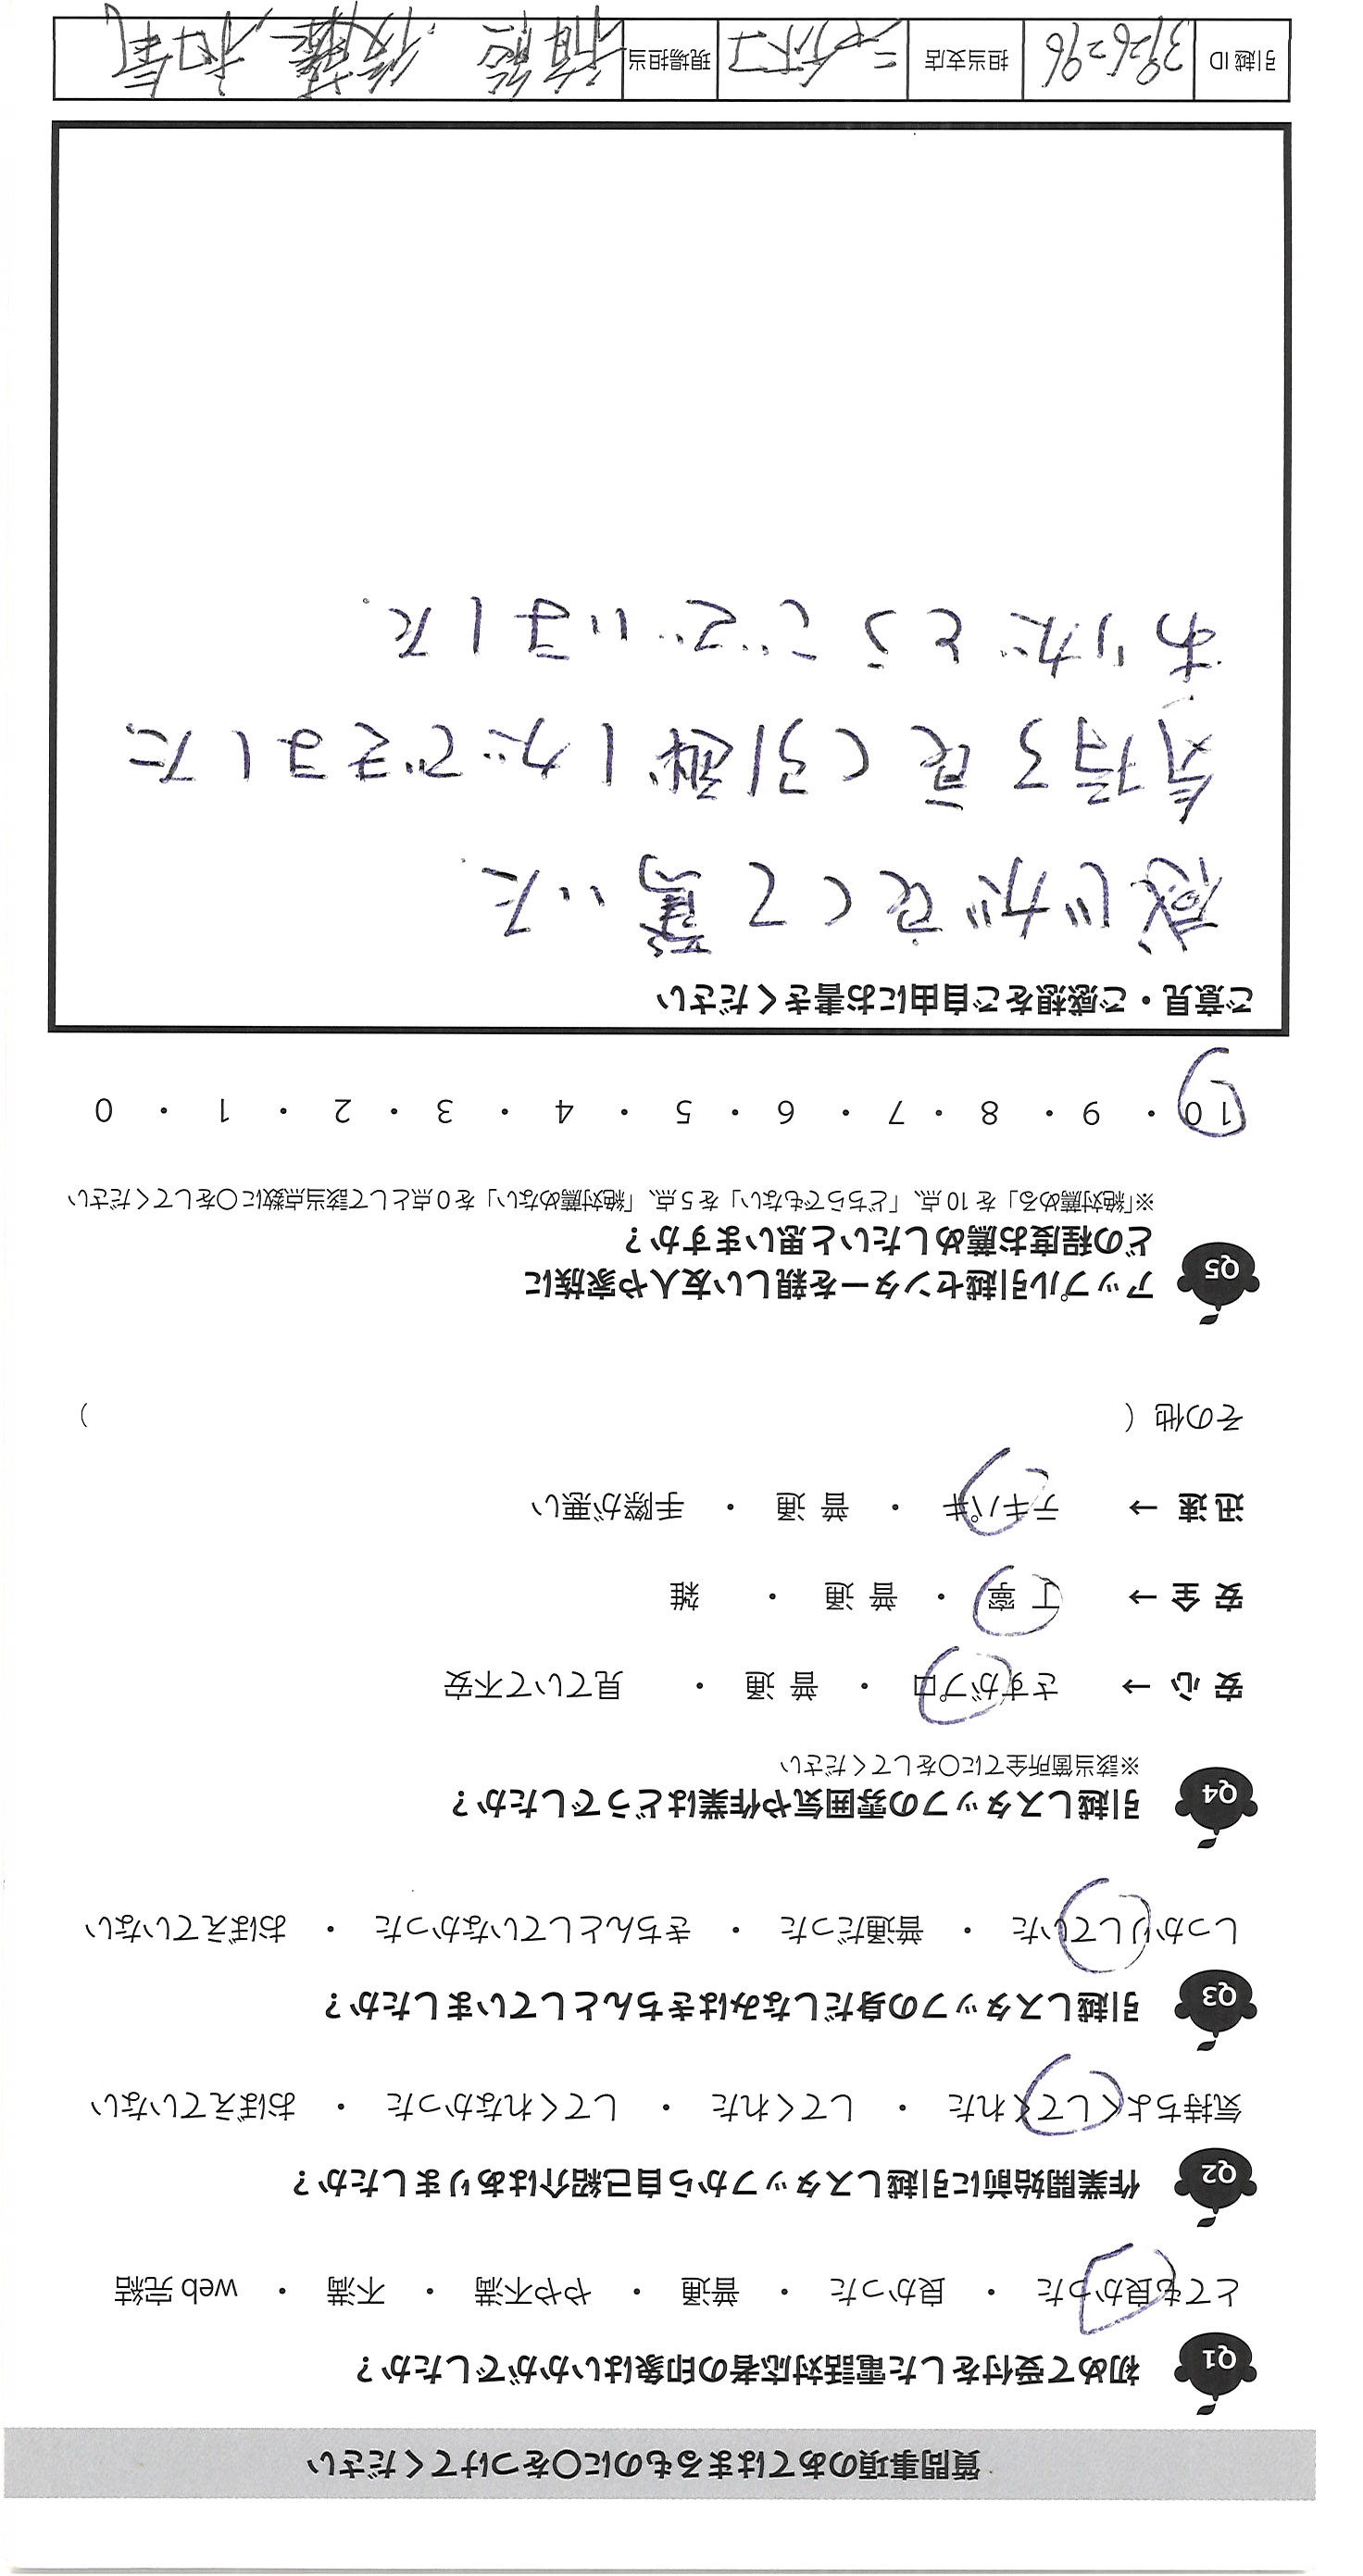 質問事項のあてはまるものに〇をつけてください
Q1 初めて受付をした電話対応者の印象はいかがでしたか？
とても良かった ・ 良かった ・ 普通 ・ やや不満 ・ 不満 ・ web 完結
Q2 作業開始前に引越しスタッフから自己紹介はありましたか？
気持ちよくしてくれた ・ してくれた ・ してくれなかった ・ おぼえていない
Q3 引越しスタッフの身だしなみはきちんとしていましたか？
しっかりしていた ・ 普通だった ・ きちんとしていなかった ・ おぼえていない
Q4 引越しスタッフの雰囲気や作業はどうでしたか？
※該当箇所全てに〇をしてください
安 心 → さすがプロ ・ 普 通 ・ 見ていて不安
安 全 → 丁 寧 ・ 普 通 ・ 雑
迅 速 → テキパキ ・ 普 通 ・ 手際が悪い
その他 （ ）
Q5 アップル引越センターを親しい友人や家族に
どの程度お薦めしたいと思いますか？
※「絶対薦める」を 10 点、「どちらでもない」を 5 点、「絶対薦めない」を 0 点として該当点数に〇をしてください
10 ・ 9 ・ 8 ・ 7 ・ 6 ・ 5 ・ 4 ・ 3 ・ 2 ・ 1 ・ 0
ご意見・ご感想をご自由にお書きください
感じが良くて驚いた.
気持ち良く引越しができました.
ありがとうございました.
引越 ID 3926296 担当支店 現場担当